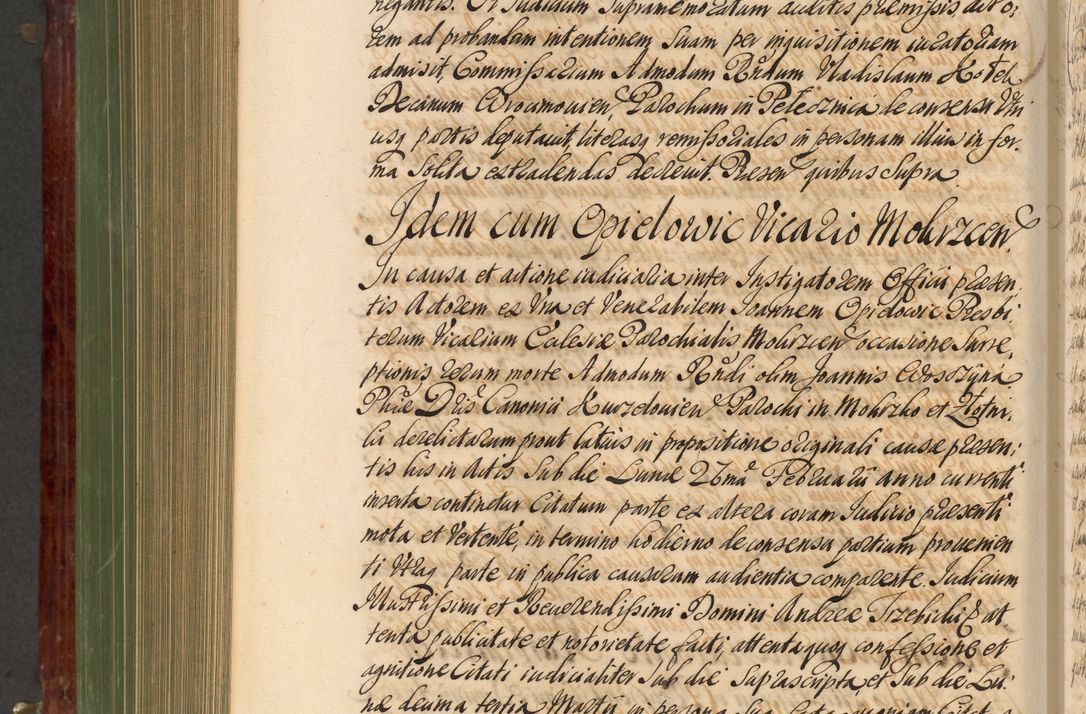 negantis. Et Judicium supramemoratum auditis praemissis, acto:
rem ad probandam intentionem suam per inquisitionem iuratoriam
admisit, Commissarium Admodum Rndum Vladislaum Kotel
Decanum Parochum in Pełcznica de consensu
usq partis deputauit, literasq remissoriales in personam illius in for:
ma solita extradendas decreuit. Praesen quibus supra
Idem cum Opielowic Vicario Mohrzcen
In causa et actione iudiciaria inter Instigatorem Officii praesen
tis Actorem ex Vna et Venerabilem Joannem Opielowic Presbi
terum Vicarium Ecclesiae Parochialis Mohrzcen occasione surre,
ptionis rerum morte Admodum Rndi olim Joannis
Phiae Dris Canonici Kurzelouien Parochi in Mohrzko et Złotni,
ki derelictarum prout latius in propositione originali causae praesen:
tis his in Actis sub die Lunae 26ma Februarii anno currenti
inserta continetur Citatum parte ex altera coram Judicio praesenti
mota et Vertente, in termino hodierno de consensu partium proueniен
ti Vtraq parte in publica causarum audientia comparente. Judicium
Illustrissimi et Reuerendissimi Domini Andreae Trzebicki at
tenta publicitate et notorietate facti, attenta quoq confessione et
agnitione Citati iudicialiter sub die suprascripta et sub die Lu:
nae decima tertia Martii in persona sua